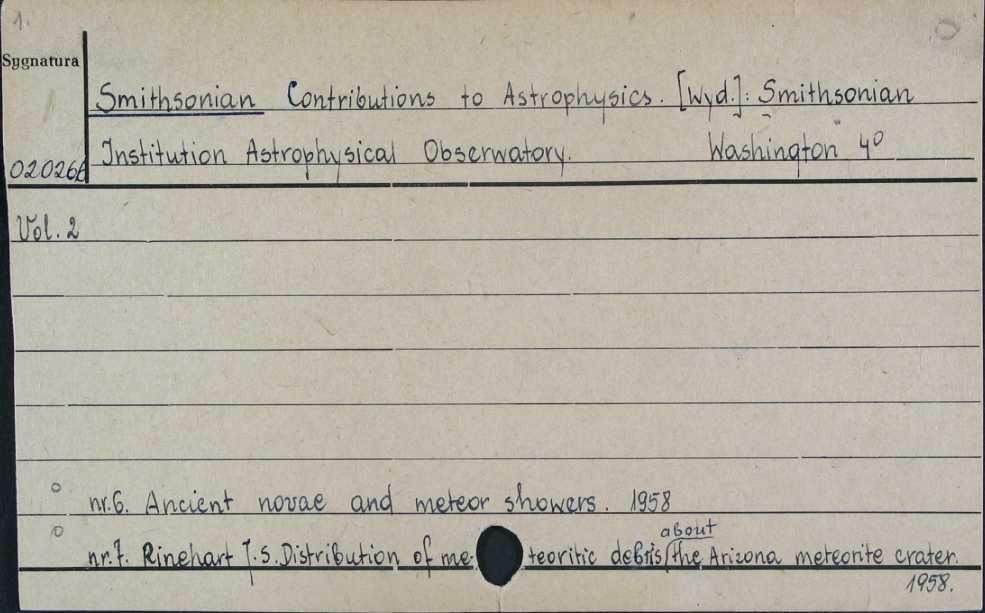 1.
Sygnatura
Smithsonian Contributions to Astrophysics. [Wyd.]: Smithsonian
020266 Institution Astrophysical Obserwatory. Washington 4°
Vol. 2
nr.6. Ancient novae and meteor showers. 1958
about
nr.7. Rinehart J.S. Distribution of me- teoritic debris/the Arizona meteorite crater.
1958.